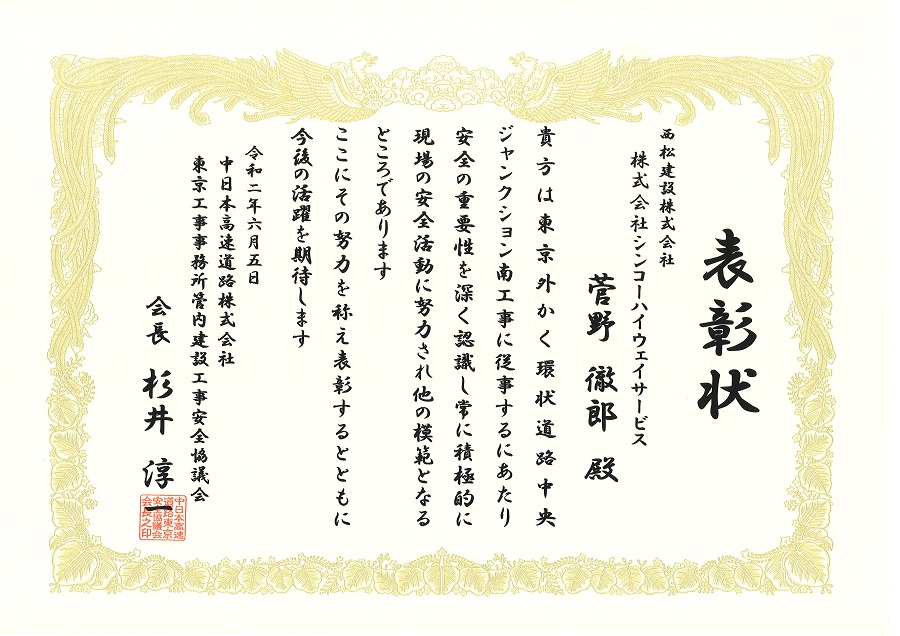 表彰状
西松建設株式会社
株式会社シンコーハイウェイサービス
菅野 徹郎 殿
貴方は東京外かく環状道路中央
ジャンクション南工事に従事するにあたり
安全の重要性を深く認識し常に積極的に
現場の安全活動に努力され他の模範となる
ところであります
ここにその努力を称え表彰するとともに
今後の活躍を期待します
令和二年六月五日
中日本高速道路株式会社
東京工事事務所管内建設工事安全協議会
会長 杉井 淳一
中日本高速
道路東京
安全協議会
会長之印